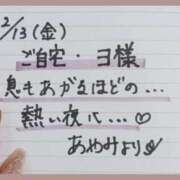 2/13(金)
ご自宅・ヨ様
息もあがるほどの...
熱い夜に...♡
あゆみより